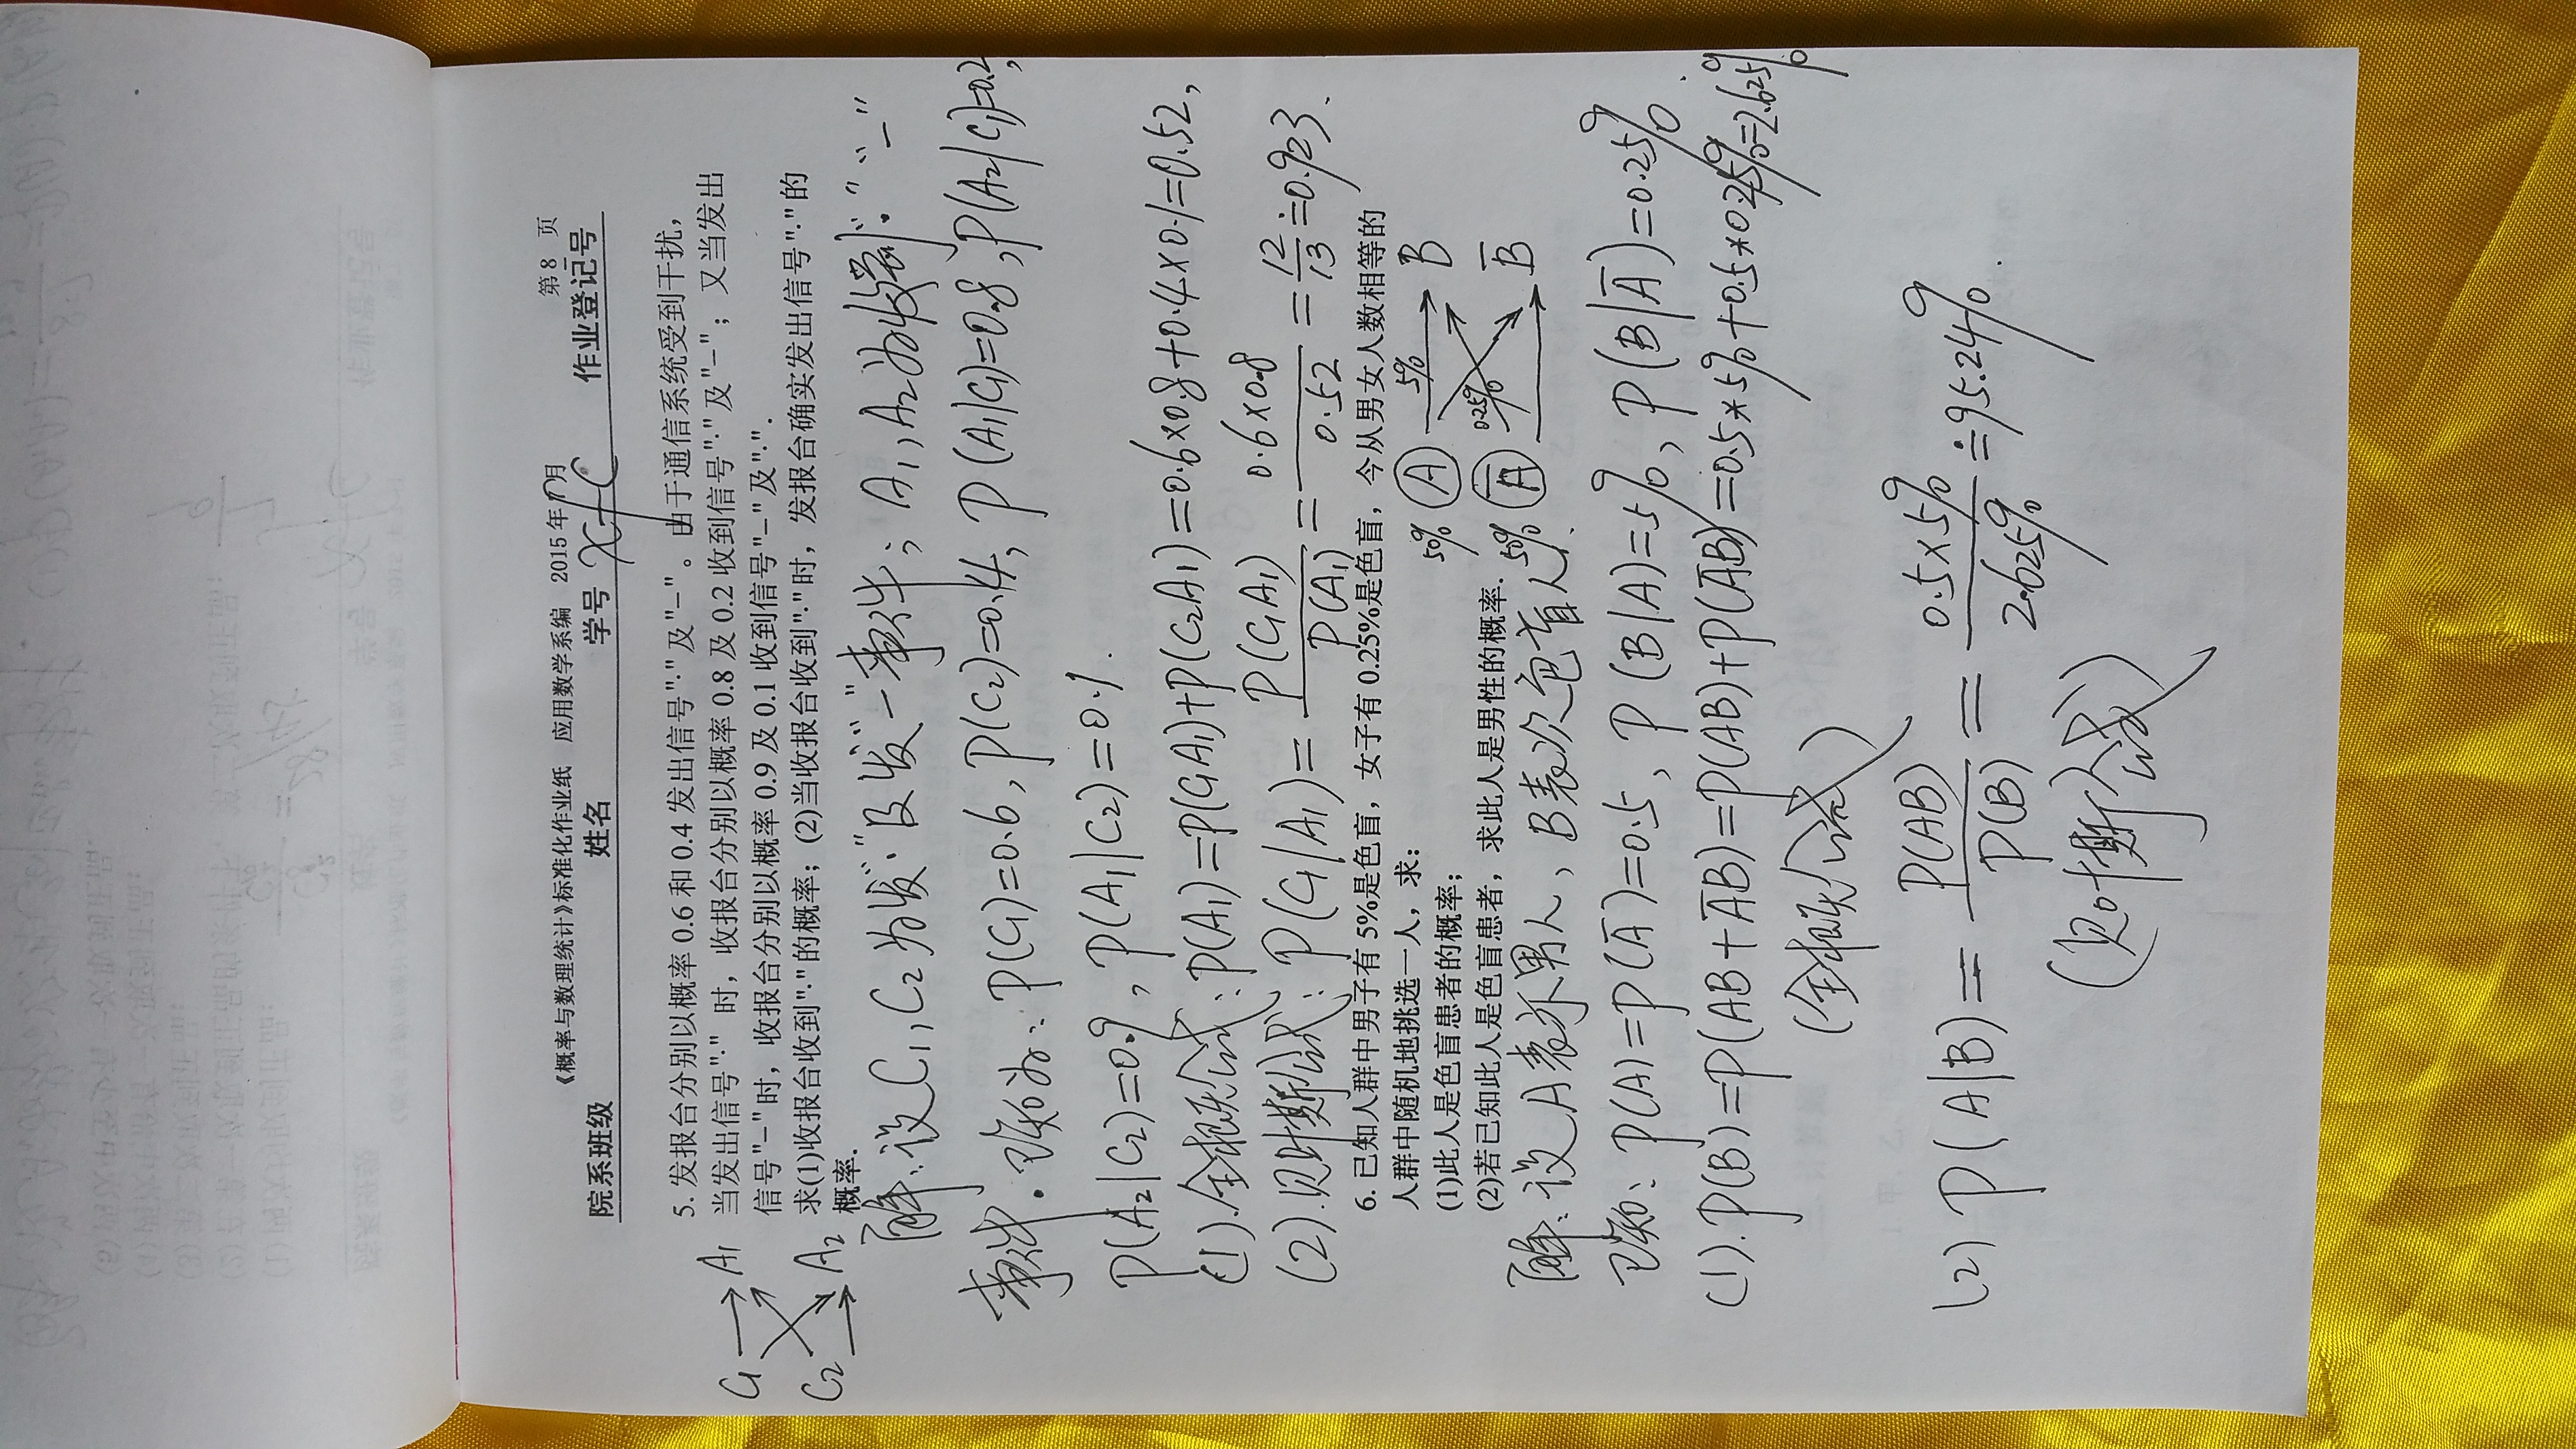 《概率与数理统计》标准化作业纸 应用数学系编 2015 年 7 月
第 8 页
院系班级 姓名 学号 xfc 作业登记号
5. 发报台分别以概率 0.6 和 0.4 发出信号"·"及"−"。由于通信系统受到干扰，
当发出信号"·" 时，收报台分别以概率 0.8 及 0.2 收到信号"·"及"−"；又当发出
信号"−"时，收报台分别以概率 0.9 及 0.1 收到信号"−"及"·".
求(1)收报台收到"·"的概率；(2)当收报台收到"·"时，发报台确实发出信号"·"的
概率.
C₁ A₁
C₂ A₂
解：设 C₁, C₂ 为发"·"及发"−"事件；A₁, A₂ 为收到"·" "−"
事件. 已知为：P(C₁)=0.6, P(C₂)=0.4, P(A₁|C₁)=0.8, P(A₂|C₁)=0.2,
P(A₂|C₂)=0.9, P(A₁|C₂)=0.1.
(1).全概公式：P(A₁)=P(C₁A₁)+P(C₂A₁)=0.6×0.8+0.4×0.1=0.52,
(2).贝叶斯公式：P(C₁|A₁)=P(C₁A₁)/P(A₁)=0.6×0.8/0.52=12/13≐0.923.
6. 已知人群中男子有 5%是色盲，女子有 0.25%是色盲，今从男女人数相等的
人群中随机地挑选一人，求：
(1)此人是色盲患者的概率；
(2)若已知此人是色盲患者，求此人是男性的概率.
50% A 5% B
50% A̅ 0.25% B̅
解：设 A表示男人, B表次色盲人.
已知：P(A)=P(A̅)=0.5, P(B|A)=5%, P(B|A̅)=0.25%.
(1).P(B)=P(AB+A̅B)=P(AB)+P(A̅B)=0.5*5%+0.5*0.25%=2.625%
(全概公式)
(2) P(A|B)=P(AB)/P(B)=0.5×5%/2.625%≐95.24%.
(贝叶斯公式)